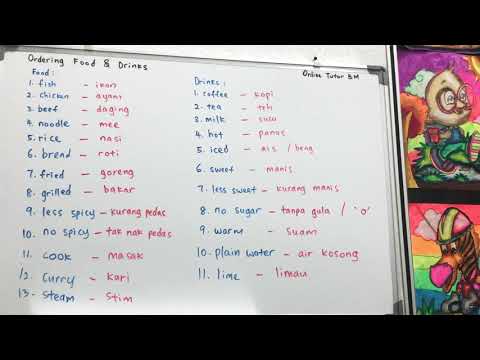 Ordering Food & Drinks
Online Tutor BM
Food :
1. fish - ikan
2. chicken - ayam
3. beef - daging
4. noodle - mee
5. rice - nasi
6. bread - roti
7. fried - goreng
8. grilled - bakar
9. less spicy - kurang pedas
10. no spicy - tak nak pedas
11. cook - masak
12. curry - kari
13. steam - stim
Drinks :
1. coffee - kopi
2. tea - teh
3. milk - susu
4. hot - panas
5. iced - ais / beng
6. sweet - manis
7. less sweet - kurang manis
8. no sugar - tanpa gula / 'o'
9. warm - suam
10. plain water - air kosong
11. lime - limau